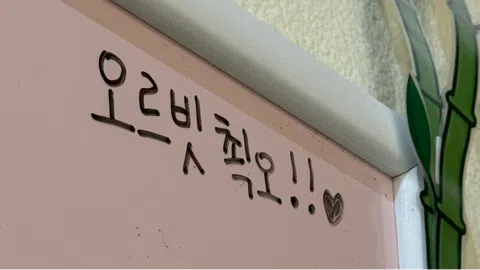 오르빗 최고!!♥